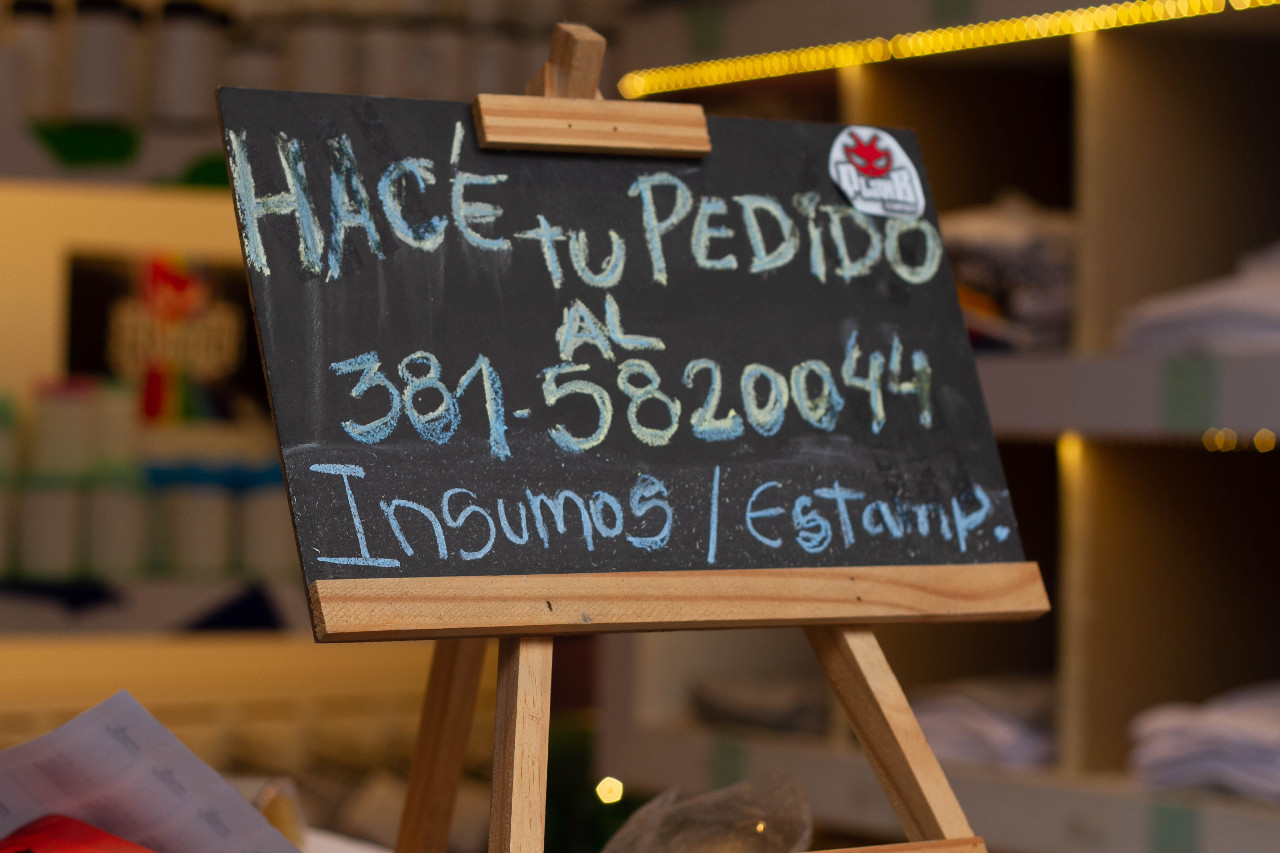 HACÉ tu PEDIDO
AL
381-5820044
Insumos / Estamp.